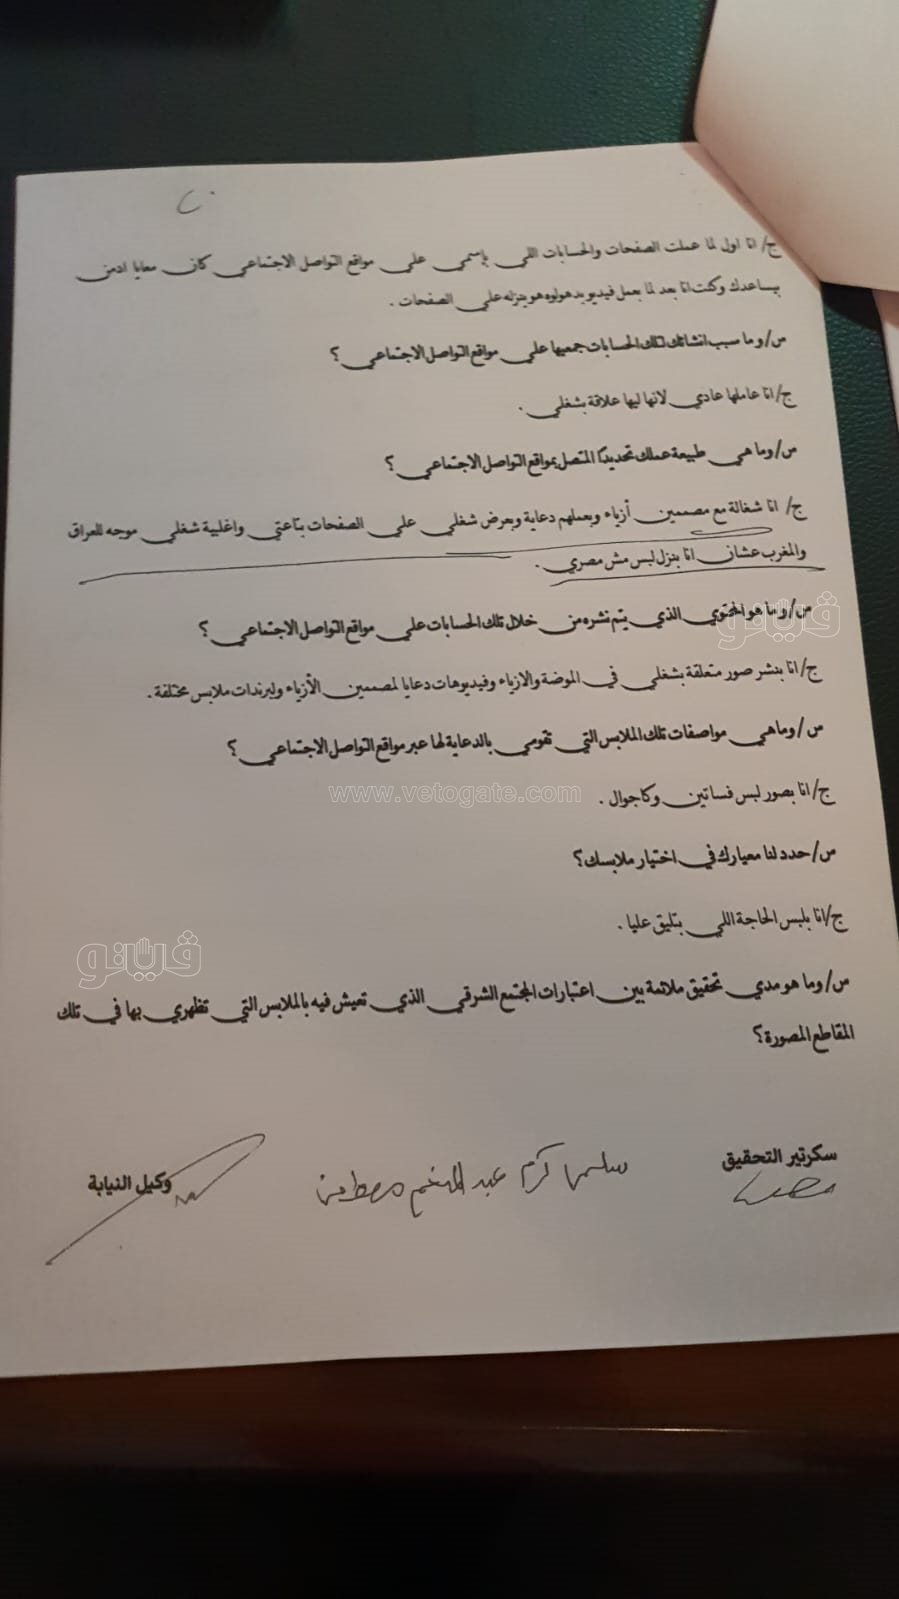 ٢٠
ج/ انا اول لما عملت الصفحات والحسابات اللي بإسمي على مواقع التواصل الاجتماعي كان معايا ادمن
بيساعدك وكنت انا بعد لما بعمل فيديو بدهوله وهو بينزله على الصفحات .
س/ وما سبب انشائك لتلك الحسابات جمعيها على مواقع التواصل الاجتماعي ؟
ج/ انا عاملها عادي لانها ليها علاقة بشغلي .
س/ وما هي طبيعة عملك تحديدًا المتصل بمواقع التواصل الاجتماعي ؟
ج/ انا شغالة مع مصممين أزياء وبعملهم دعاية وبعرض شغلي على الصفحات بتاعتي واغلبية شغلي موجه للعراق
والمغرب عشان انا بنزل لبس مش مصري .
س/ وما هو المحتوي الذي يتم نشره من خلال تلك الحسابات على مواقع التواصل الاجتماعي ؟
ج/ انا بنشر صور متعلقة بشغلي في الموضة والازياء وفيديوهات دعايا لمصممين الأزياء ولبرندات ملابس مختلفة .
س/ وماهي مواصفات تلك الملابس التي تقومي بالدعاية لها عبر مواقع التواصل الاجتماعي ؟
ج/ انا بصور لبس فساتين وكاجوال .
س/ حدد لنا معيارك في اختيار ملابسك ؟
ج/ انا بلبس الحاجة اللي بتليق عليا .
س/ وما هو مدي تحقيق ملائمة بين اعتبارات المجتمع الشرقي الذي تعيش فيه بالملابس التي تظهري بها في تلك
المقاطع المصورة ؟
سكرتير التحقيق
وكيل النيابة
عبد المنعم
ڤيتو
www.vetogate.com
ڤيتو